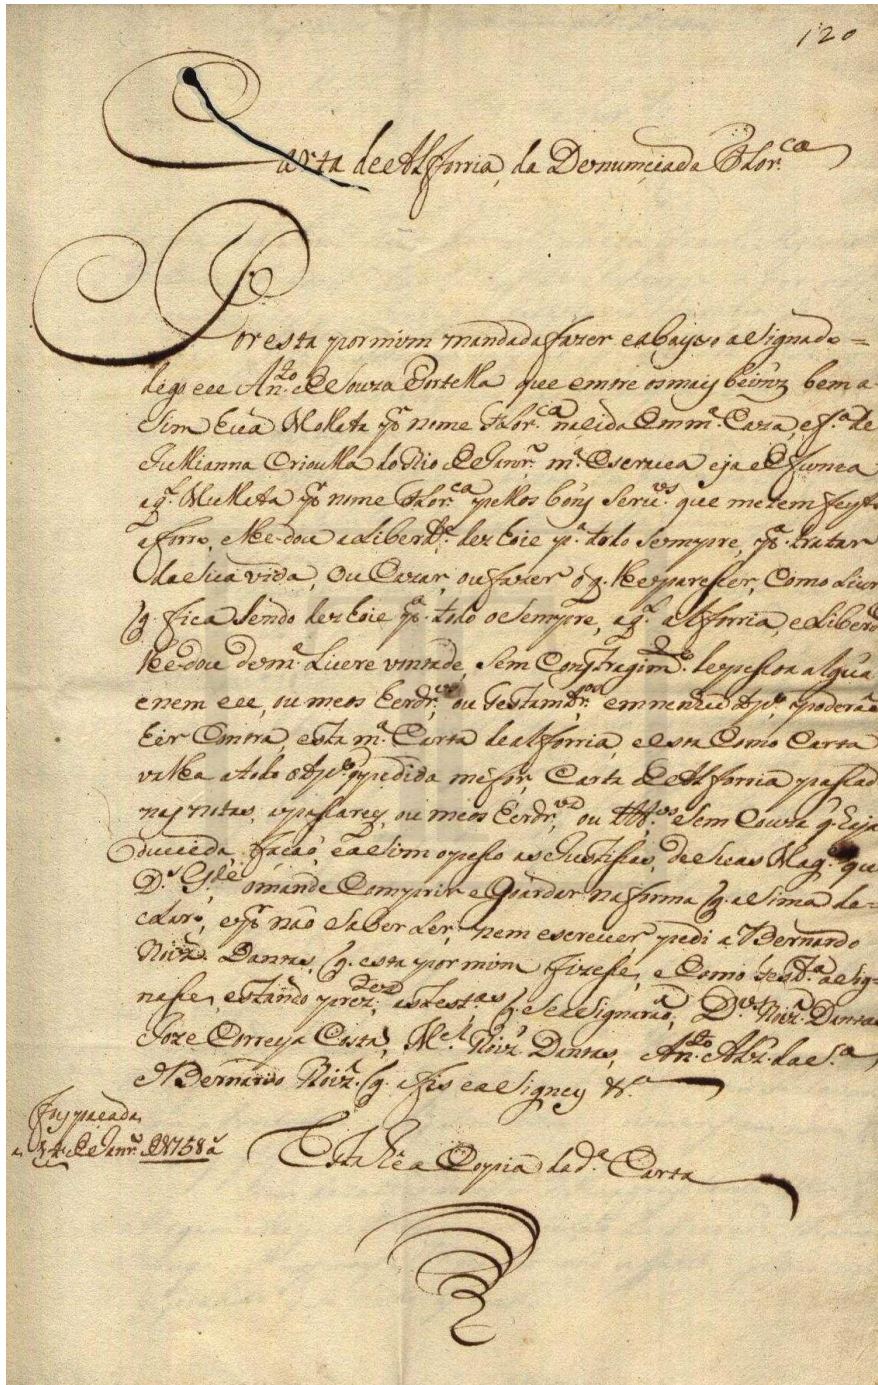 120
Carta de Alforria, da Denunciada Flor.ca
Por esta por mim mandada fazer e abayxo asignado =
digo eu An.to de Souza Portella que entre os mays beñz bem a-
sim hũa Mollata p.r nome Flor.ca nasida em m.a Caza, e f.a de
Jullianna Crioulla do Rio de Janr.o m.a escrava eja defunta
a q.l Mullata p.r nome Flor.ca pellos bonz serv.os que me tem feyto
aforro, e lhe dou a Liberd.e dez hoie p.a todo sempre, p.a tratar
da sua vida, ou Cazar, ou fazer o q. lhe pareser, Como Livr
q. fica sendo dez hoie p.a todo o sempre, a q.l alforria, e Liberd
lhe dou de m.a Livre vontade, sem Constragim.to de pesoa algũa
e nem eu, ou meos Erdr.os ou Testam.tr.os em nenhũ tp.o poderaõ
hir Contra, esta m.a Carta de alforria, e esta Como Carta
valha a todo o tp.o e pedida me for, Carta de Alforria pasad
nas notas, a pasarey, ou meos Erdr.os ou sem Couza q. haja
duvida façaõ, e asim o peso as Justisas, de Suas Mag.es que
D.s G.de o mande Comprir e Goardar na forma q. asima de=
claro, e p.r naõ saber Ler, nem escrever pedi a Bernardo
Roiz. Dantas, q. esta por mim fizese, e Como test.a asig-
nase, estando prez.tes as test.as q. se asignaraõ, D.os Roiz. Dantas
Joze Correya Costa, M.el Roiz. Dantas, An.to Alz. da S.a
e Bernardo Roiz. q. a fis e asigney &.a
Foy pasada
a 24 de Janr.o de 1758 a
Esta he a Copia da d.a Carta